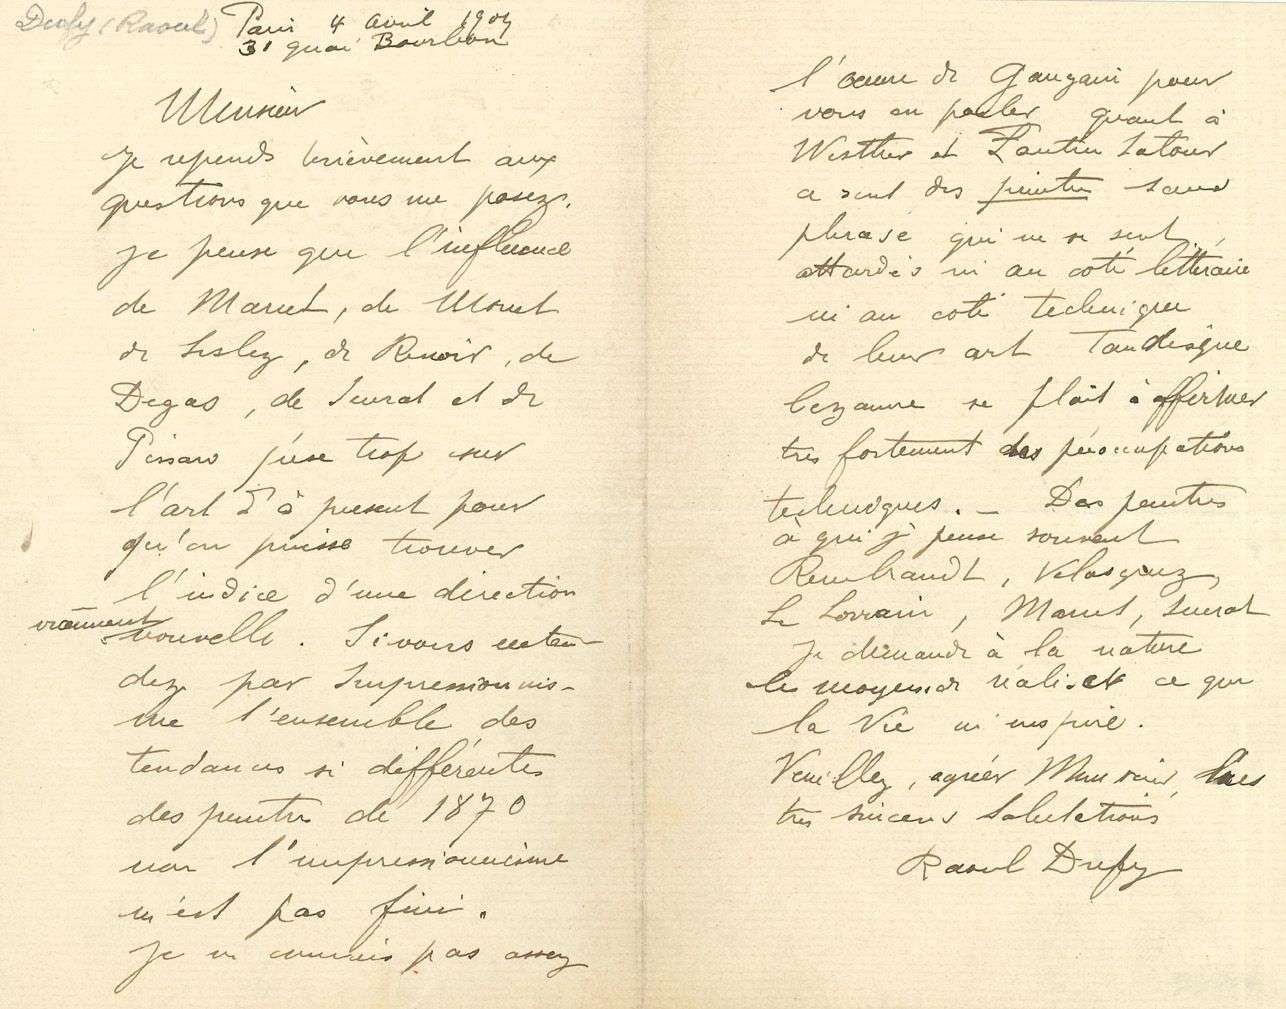 Dufy (Raoul)
Paris 4 avril 1905
31 quai Bourbon
Monsieur
Je reponds brièvement aux
questions que vous me posez.
je pense que l'influence
de Manet, de Monet
de Sisley, de Renoir, de
Degas, de Seurat et de
Pissaro pèse trop sur
l'art d'à present pour
qu'on puisse trouver
l'indice d'une direction
vraiment
nouvelle. Si vous enten-
dez par Impressionnis-
me l'ensemble des
tendances si différentes
des peintres de 1870
non l'impressionnisme
n'est pas fini.
je ne connais pas assez
l'œuvre de Gauguin pour
vous en parler quant à
Wisther et Fantin Latour
ce sont des peintres sans
phrase qui ne se sont
attardés ni au coté litteraire
ni au coté technique
de leur art Tandisque
Cezanne se plait à affirmer
tres fortement des péoccupations
techniques. _ Des peintres
à qui je pense souvent
Rembrandt, Velasquez,
Le Lorrain, Manet, Seurat
je demande à la nature
les moyens de réaliser ce que
la Vie m'inspire.
Veuillez, agréer Monsieur, mes
tres sinceres Salutations
Raoul Dufy